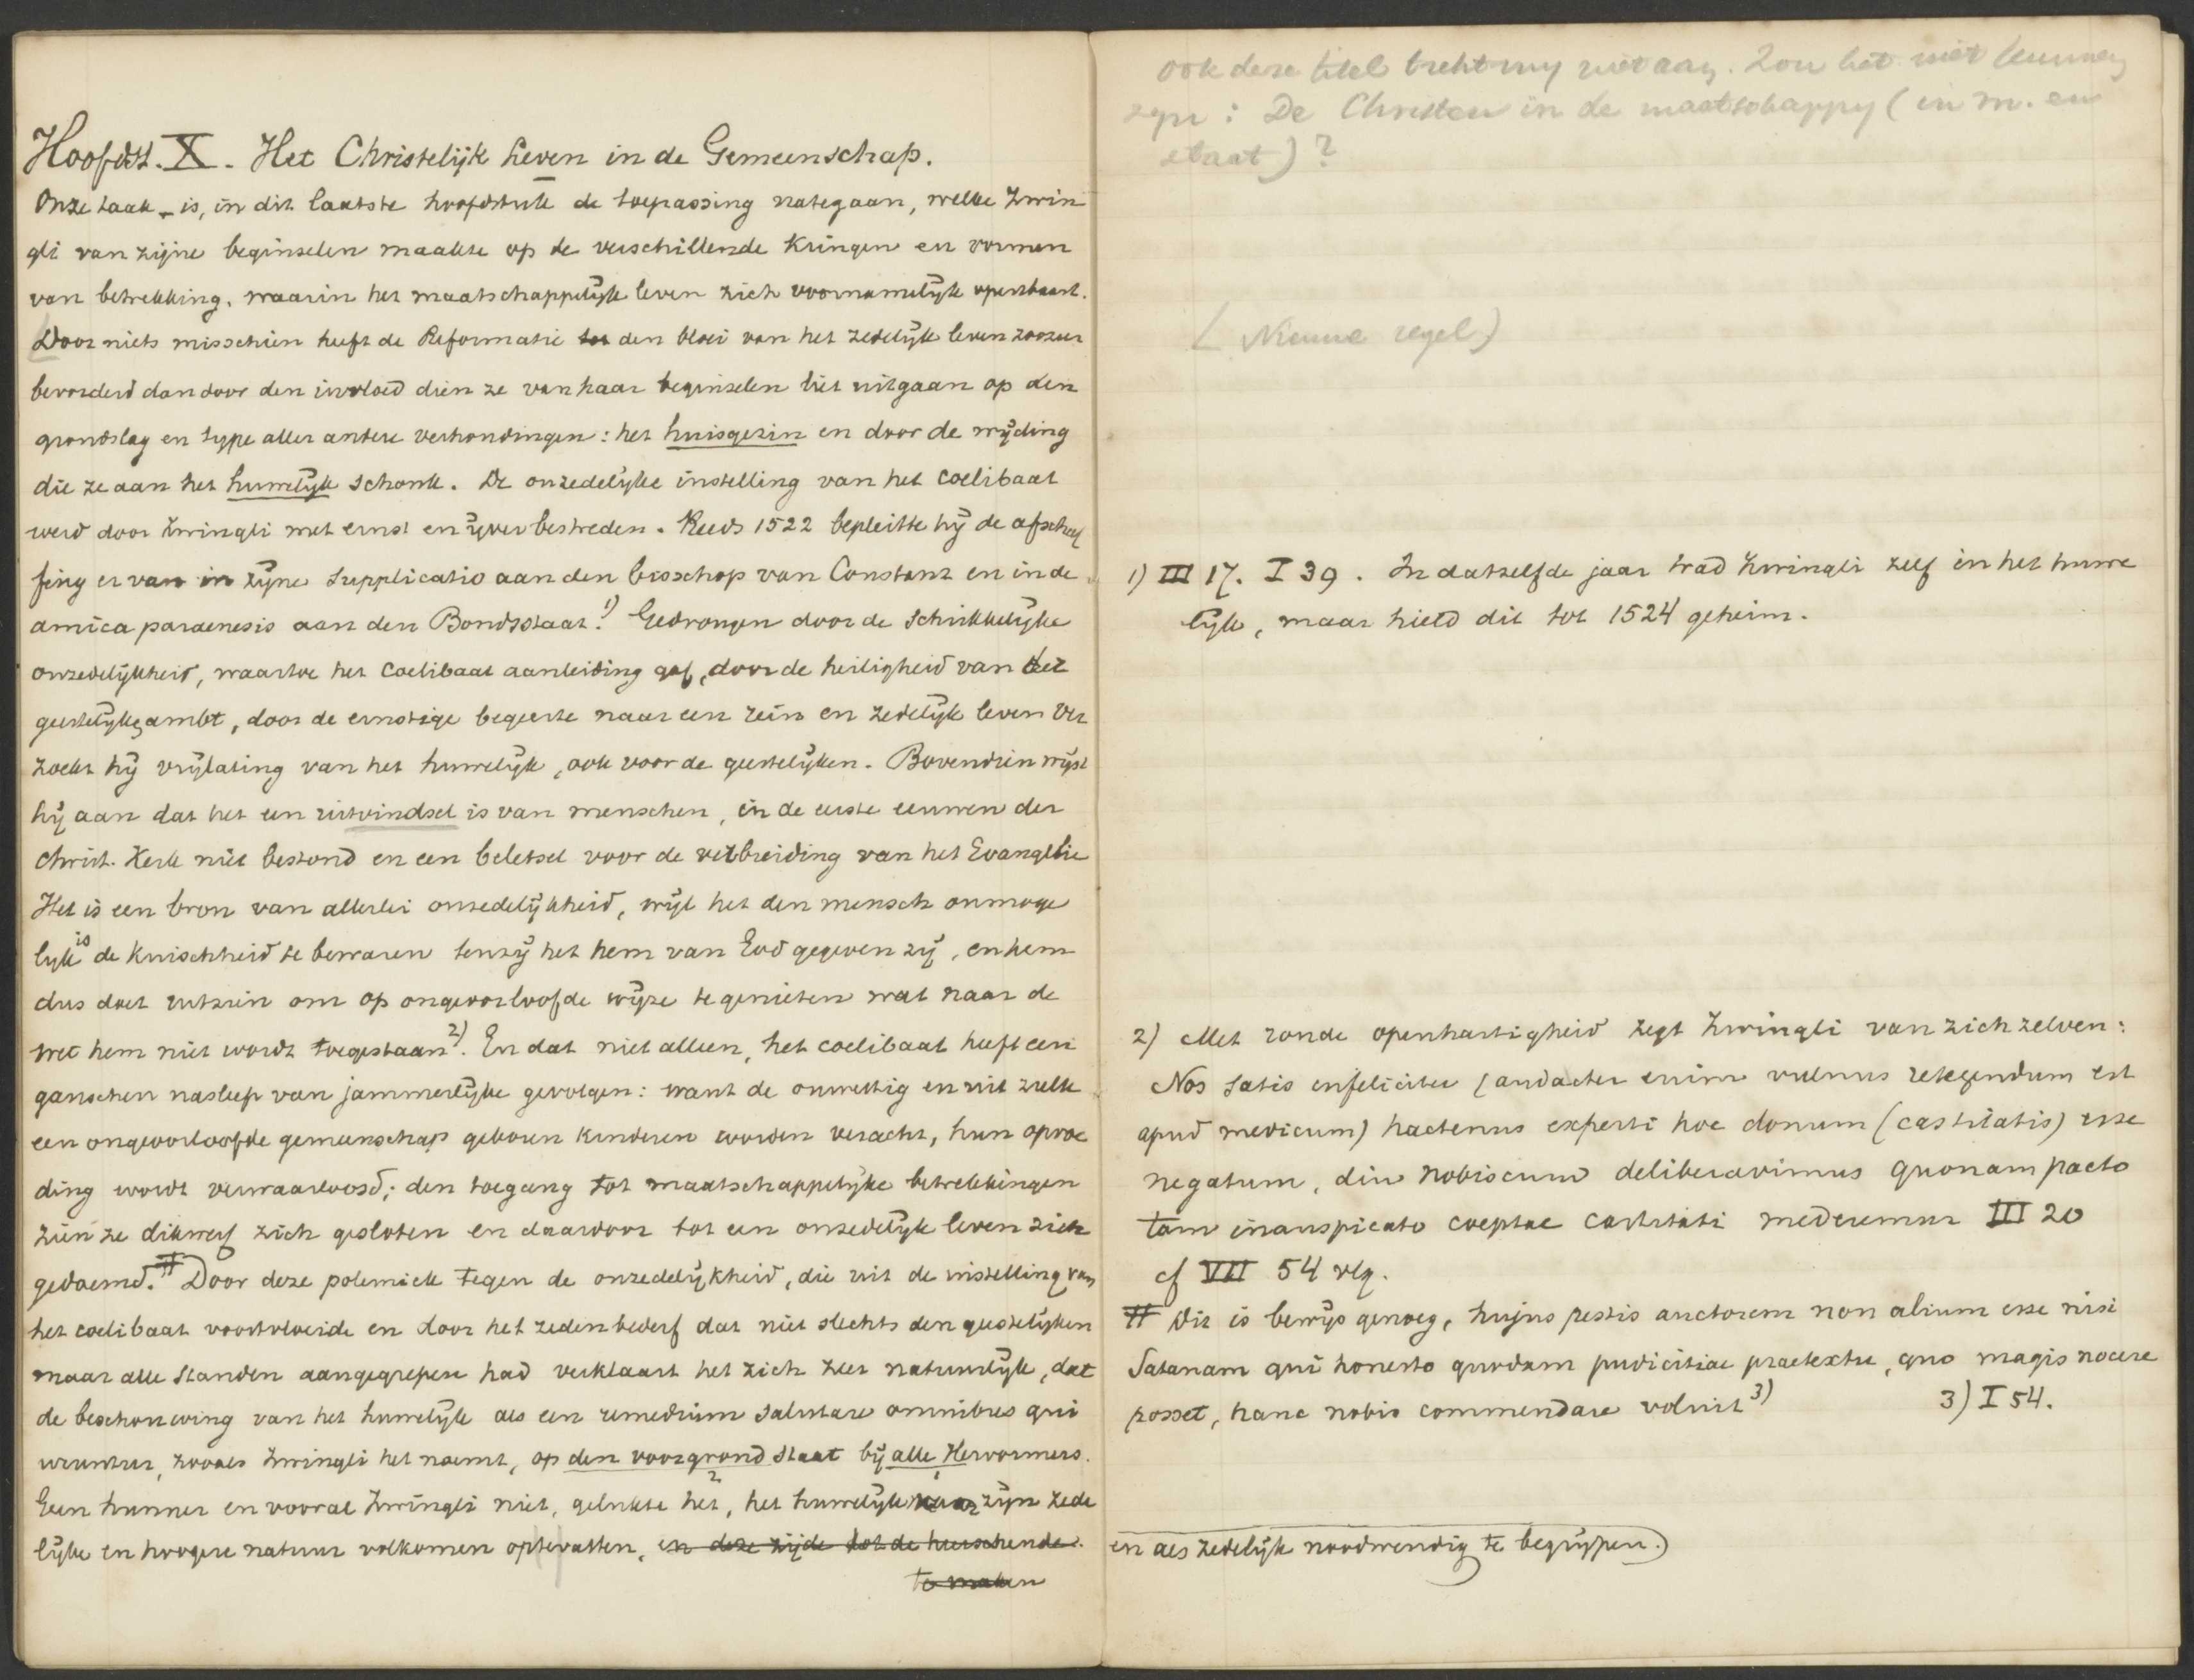 Hoofdst. X. Het Christelijk Leven in de Gemeenschap.
Onze taak is, in dit laatste hoofdstuk de toepassing nategaan, welke Zwin
gli van zijne beginselen maakte op de verschillende kringen en vormen
van betrekking, waarin het maatschappelijk leven zich voornamelijk openbaart.
Door niets misschien heeft de Reformatie tot den bloei van het zedelijk leven zoozeer
bevorderd dan door den invloed dien ze van haar beginselen liet uitgaan op den
grondslag en type aller andere verhoudingen: het huisgezin en door de wijding
die ze aan het huwelijk schonk. De onzedelijke instelling van het coelibaat
werd door Zwingli met ernst en ijver bestreden. Reeds 1522 bepleitte hij de afschaf
fing er van in zijne Supplicatio aan den bisschop van Constanz en in de
amica paraenesis aan den Bondsstaat.1) Gedrongen door de schrikkelijke
onzedelijkheid, waartoe het coelibaat aanleiding gaf, door de heiligheid van het
geestelijke ambt, door de ernstige begeerte naar een rein en zedelijk leven ver
zoekt hij vrijlating van het huwelijk, ook voor de geestelijken. Bovendien wijst
hij aan dat het een uitvindsel is van menschen, in de eerste eeuwen der
Christ. Kerk niet bestond en een beletsel voor de verbreiding van het Evangelie
Het is een bron van allerlei onzedelijkheid, wijl het den mensch onmoge
lijk is de kuischheid te bewaren tenzij het hem van God gegeven zij, en hem
dus doet uitzien om op ongeoorloofde wijze te genieten wat naar de
wet hem niet wordt toegestaan2). En dat niet alleen, het coelibaat heeft een
ganschen nasleep van jammerlijke gevolgen: want de onwettig en uit zulk
een ongeoorloofde gemeenschap geboren kinderen worden veracht, hun opvoe
ding wordt verwaarloosd; den toegang tot maatschappelijke betrekkingen
zien ze dikwerf zich gesloten en daardoor tot een onzedelijk leven zich
gedoemd.# Door deze polemiek tegen de onzedelijkheid, die uit de instelling van
het coelibaat voortvloeide en door het zedenbederf dat niet slechts den geestelijken
maar alle standen aangegrepen had verklaart het zich zeer natuurlijk, dat
de beschouwing van het huwelijk als een remedium salutare omnibus qui
uruntur, zooals Zwingli het noemt, op den voorgrond staat bij alle Hervormers.
Geen hunner en vooral Zwingli niet, gelukte het, het huwelijk naar zijn zede
lijke en hoogere natuur volkomen optevatten, en deze zijde tot de heerschende
te maken
ook deze titel trekt my niet aan. Zou het niet kunnen
zyn: De Christen in de maatschappy (in m. en
staat)?
( Nieuwe regel)
1) III 17. I 39. In datzelfde jaar trad Zwingli zelf in het huwe
lijk, maar hield dit tot 1524 geheim.
2) Met ronde openhartigheid zegt Zwingli van zich zelven:
Nos satis infeliciter (audacter enim vulnus retegendum est
apud medicum) hactenus experti hoc donum (castitatis) esse
negatum, diu nobiscum deliberavimus quonam pacto
tam inauspicato coeptae castitati mederemur III 20
cf VII 54 vlg.
# Dit is bewijs genoeg, hujus pestis auctorem non alium esse nisi
Satanam qui honesto quodam pudicitiae praetextu, quo magis nocere
posset, hanc nobis commendare voluit3)
3) I 54.
en als zedelijk noodwendig te begrijpen.)